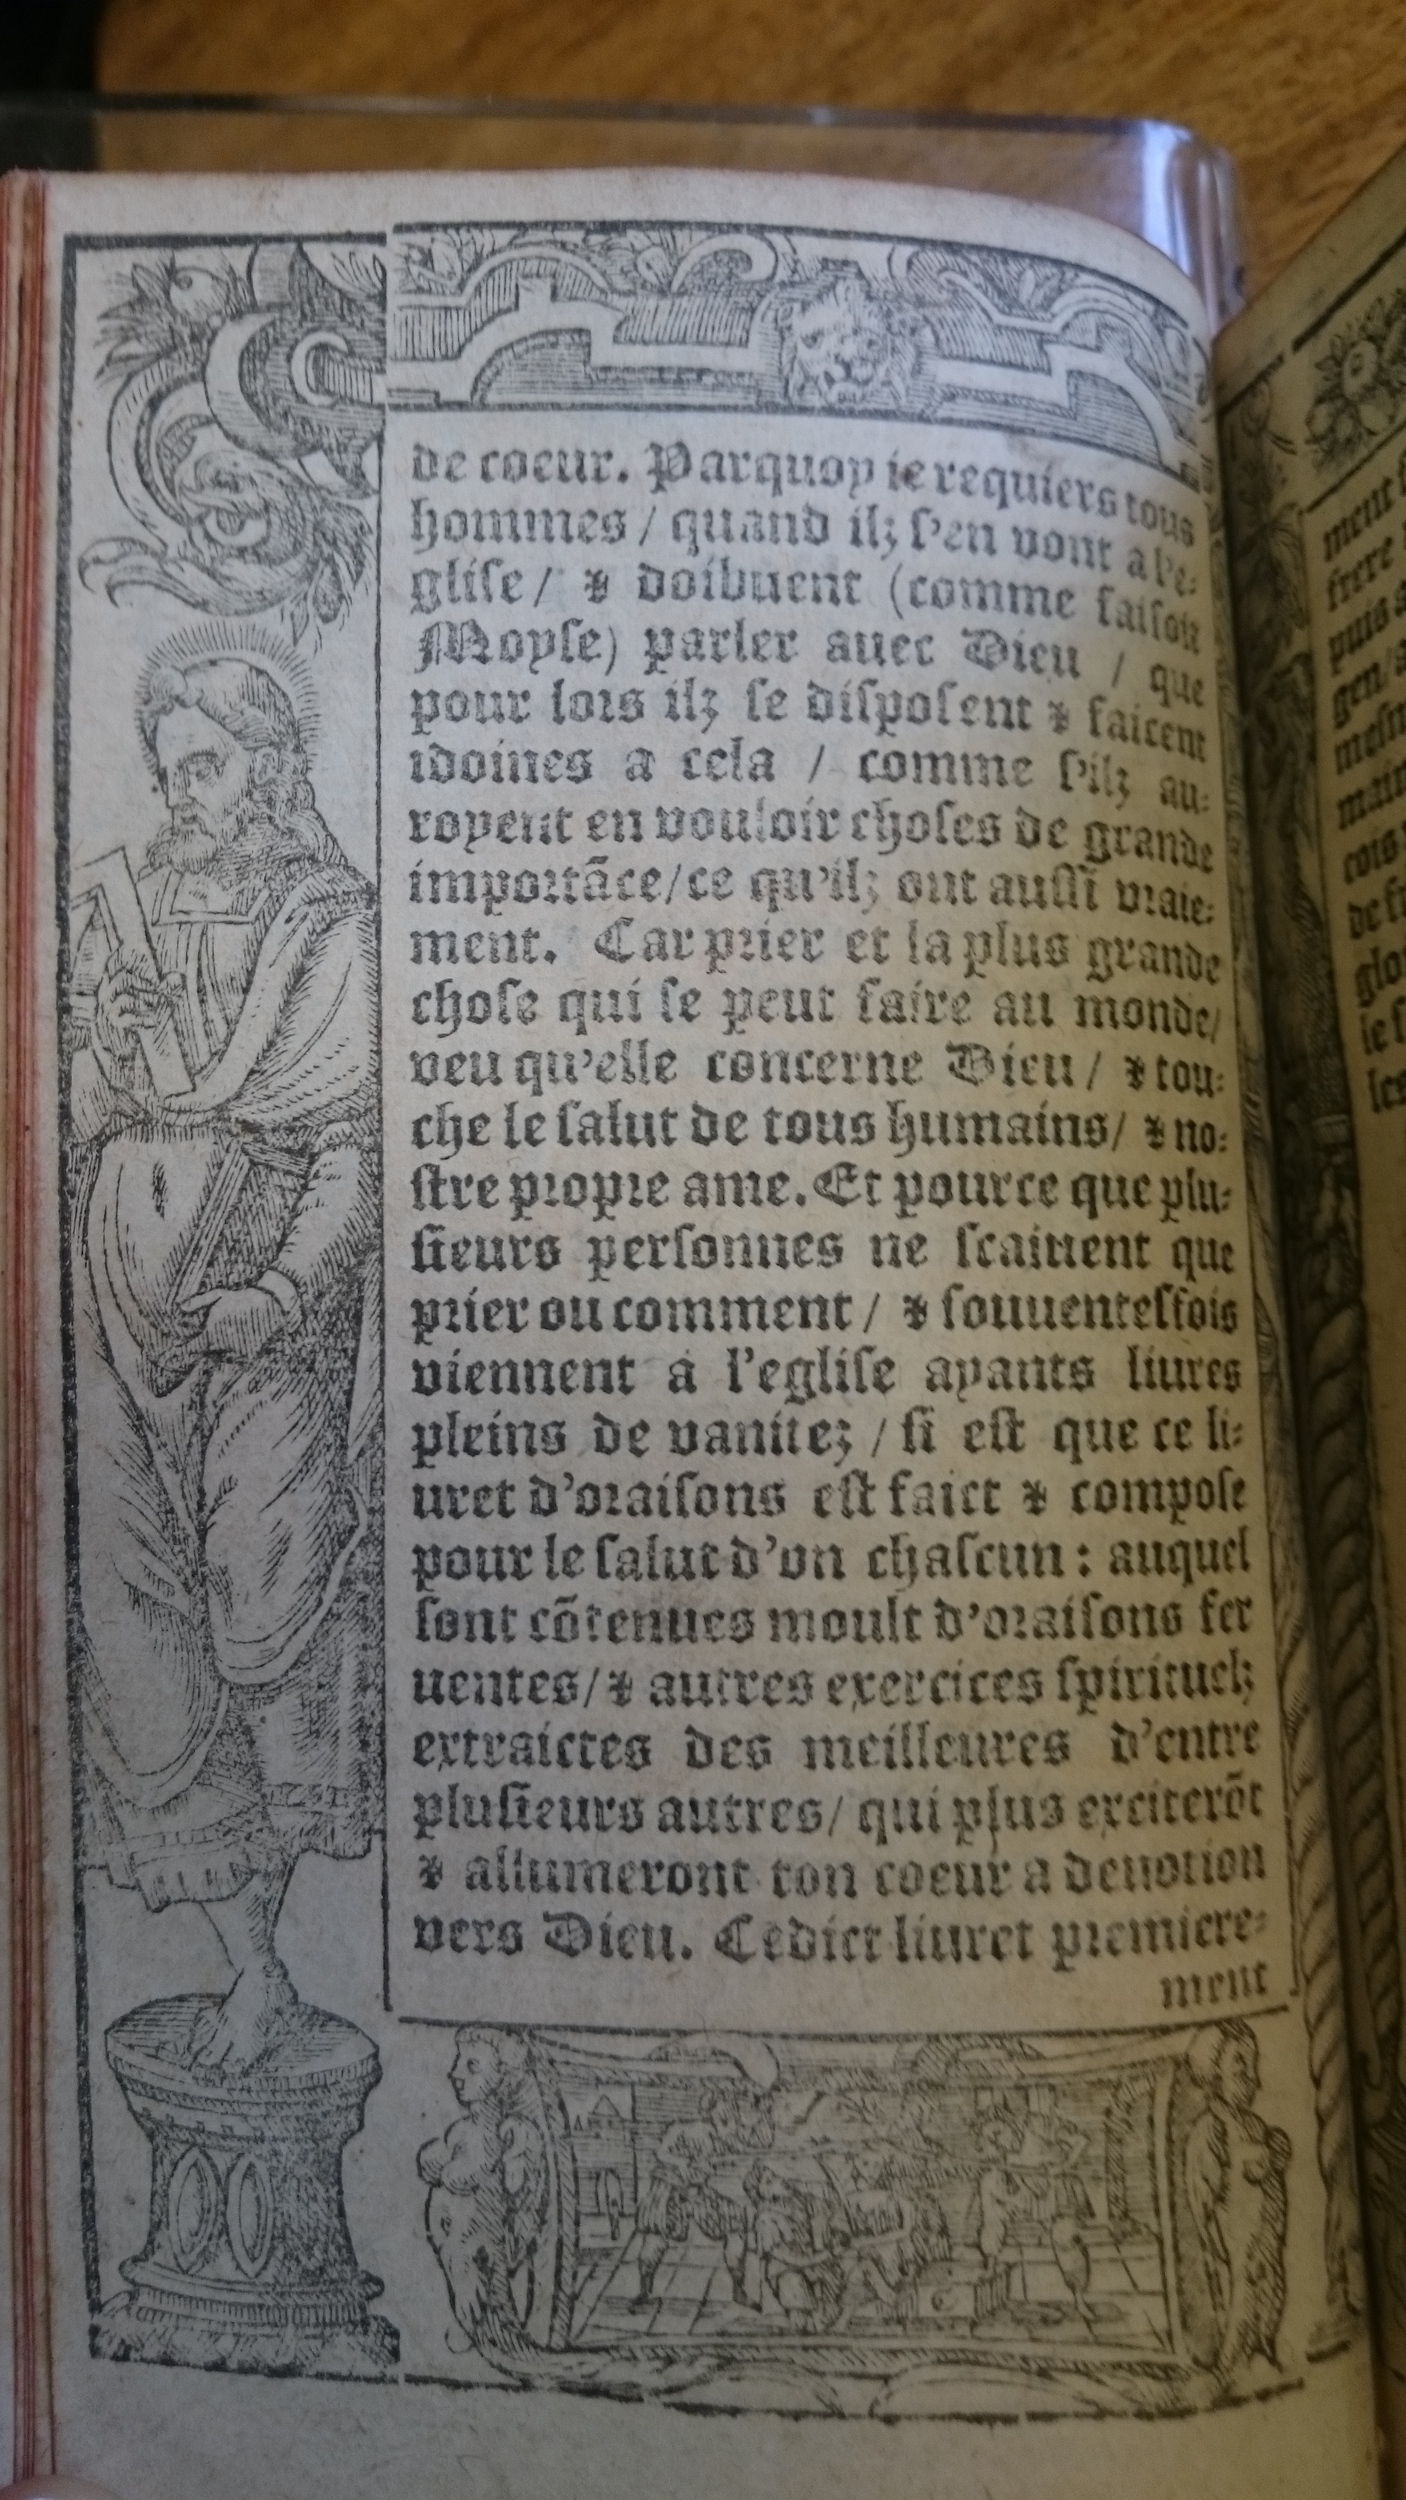 de coeur. Parquoy ie requiers tous
hommes / quand ilz s'en vont a l'e-
glise / & doibuent (comme faisoit
Moyse) parler auec Dieu / que
pour lors ilz se disposent & facent
idoines a cela / comme s'ilz au-
royent en vouloir choses de grande
importãce/ce qu'ilz ont aussi vraie-
ment. Car prier et la plus grande
chose qui se peut faire au monde/
veu qu'elle concerne Dieu / & tou-
che le salut de tous humains/ & no-
stre propre ame. Et pource que plu-
sieurs personnes ne scaiuent que
prier ou comment / & souuentesfois
viennent a l'eglise ayants liures
pleins de vanitez / si est que ce li-
uret d'oraisons est faict & compose
pour le salut d'vn chascun : auquel
sont cõtenues moult d'oraisons fer
uentes/& autres exercices spirituelz
extraictes des meilleures d'entre
plusieurs autres/ qui plus exciterõt
& allumeront ton coeur a deuotion
vers Dieu. Cedict liuret premiere-
ment
ment
frere
puis
gen/
mesm
main
cois
de
glo
le
les